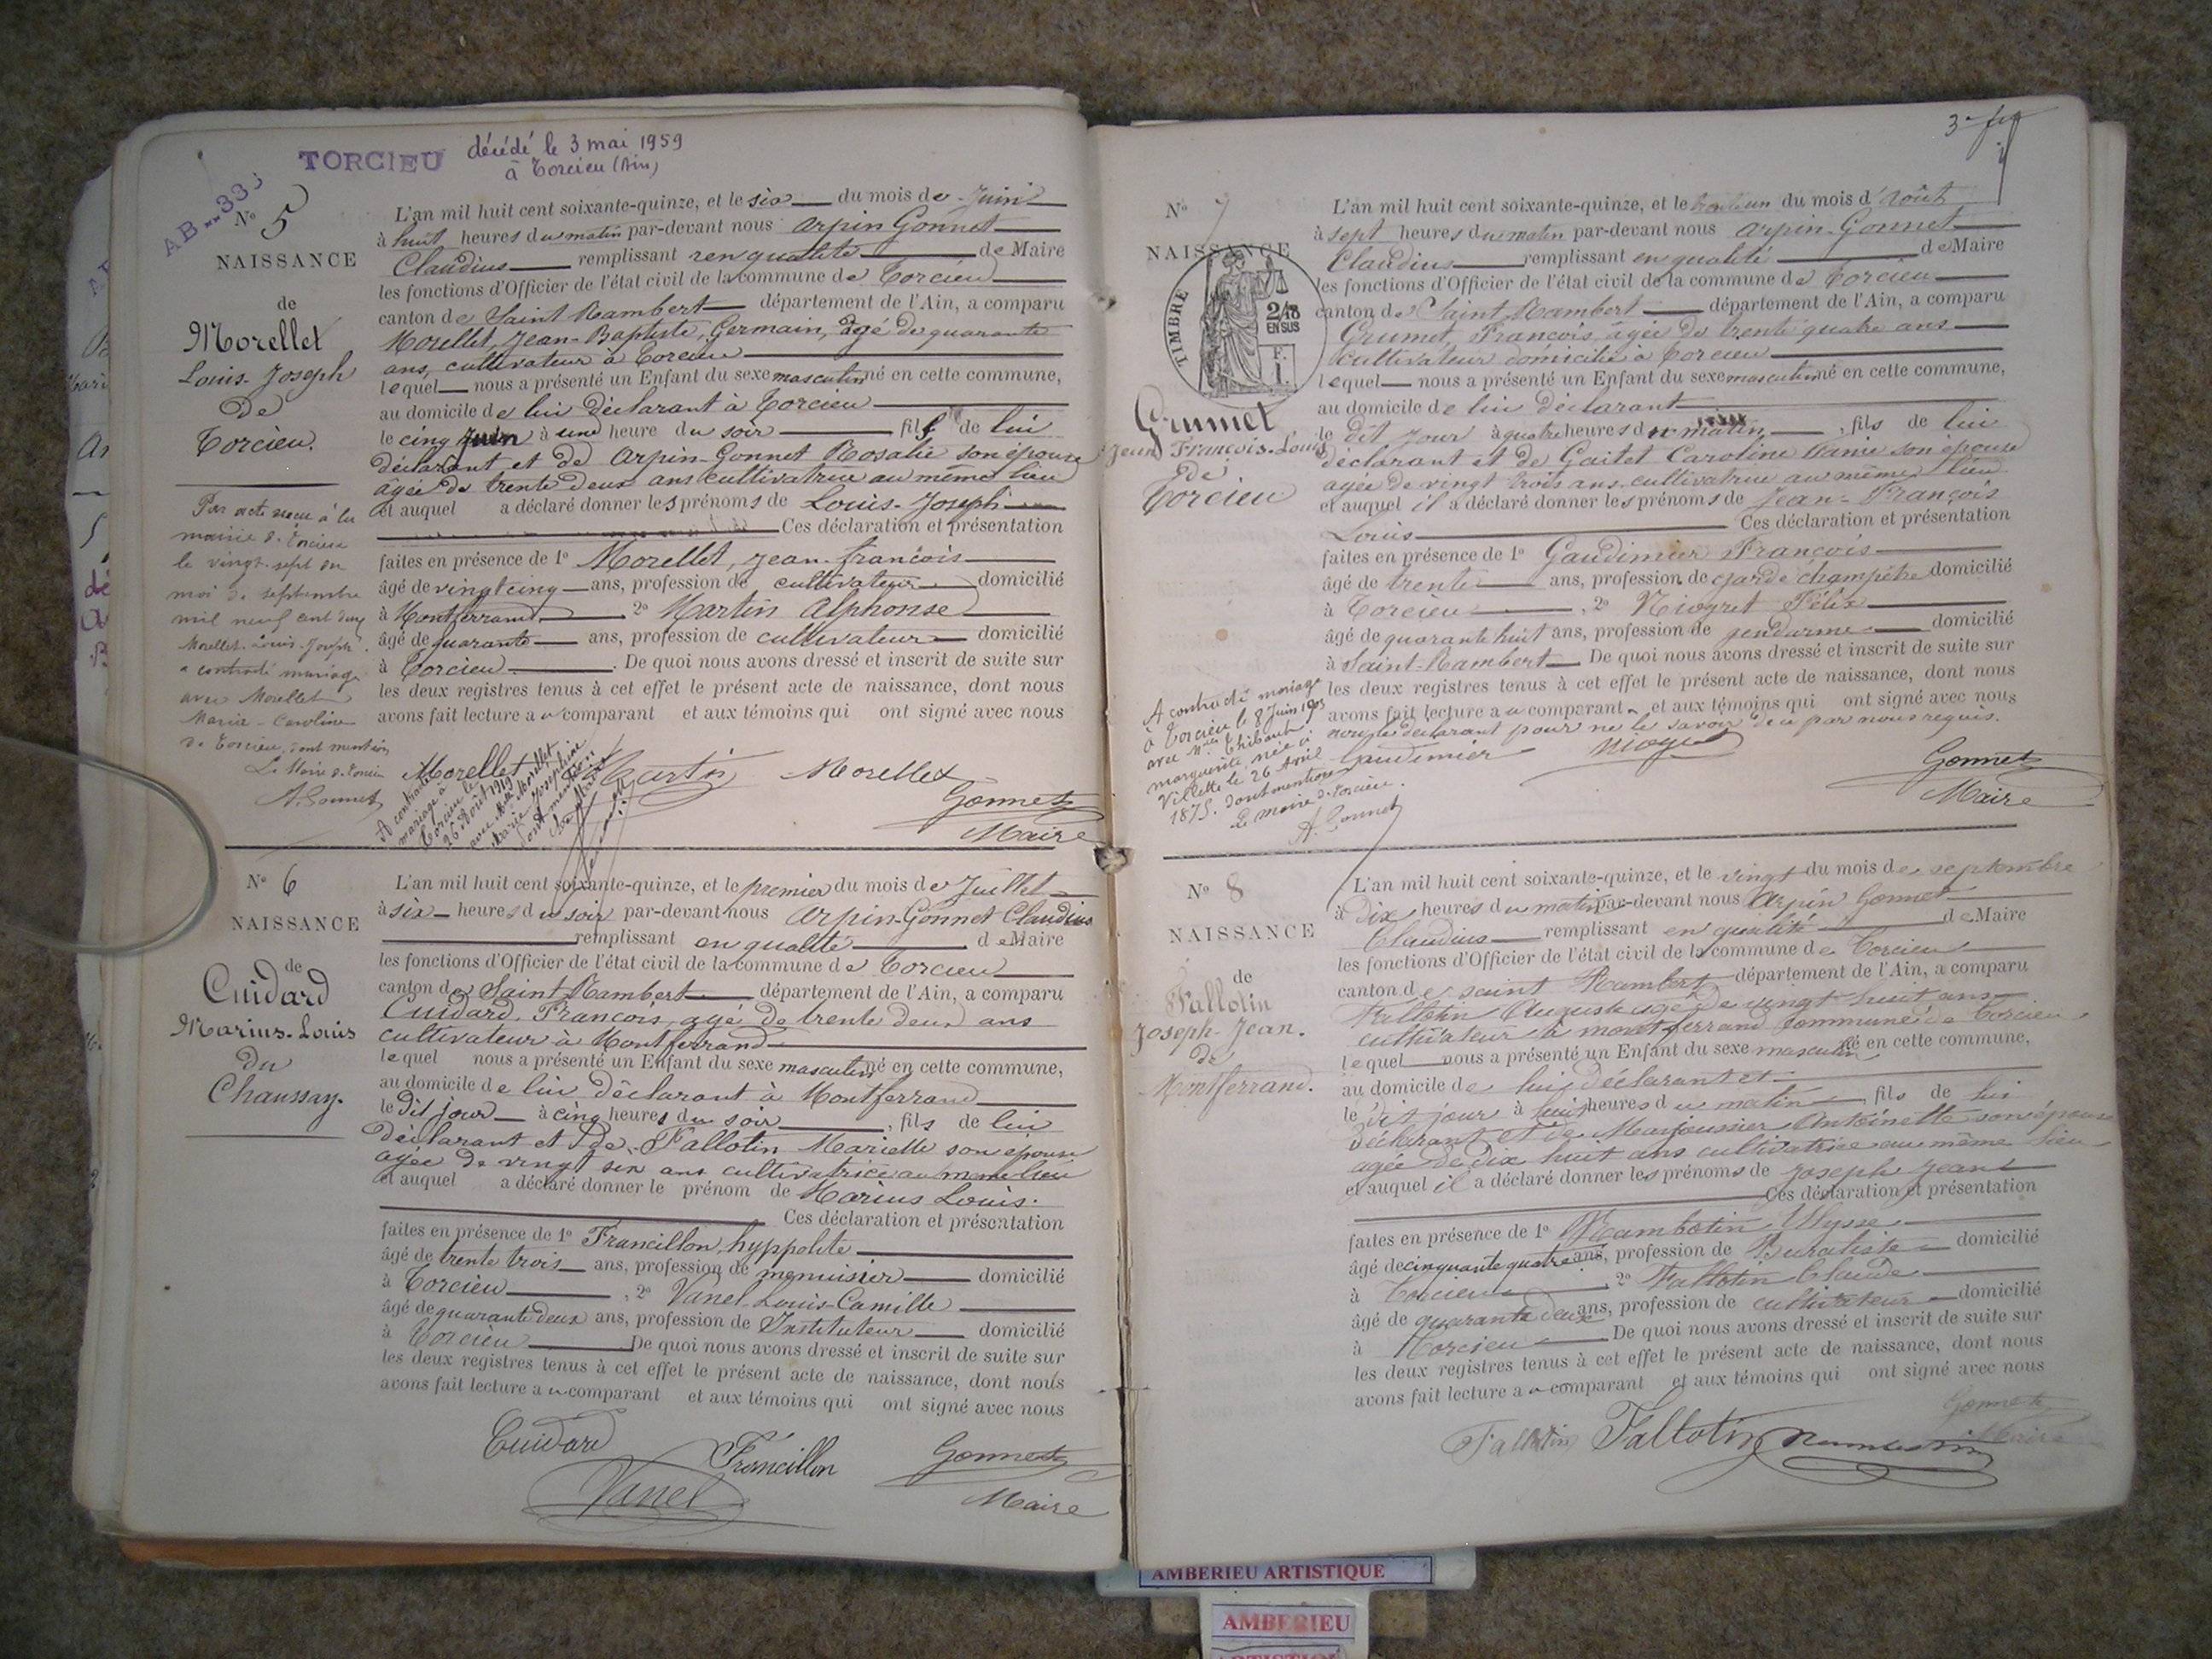 TORCIEU
décédé le 3 mai 1959
à Torcieu (Ain)
AB
N° 5
NAISSANCE
de
Morellet
Louis-Joseph
de
Torcieu.
Par acte reçu à la
mairie de Torcieu
le vingt-sept du
mois de septembre
mil neuf cent
Morellet Louis-Joseph
a contracté mariage
avec Morellet
Marie-Caroline
de Torcieu, dont mention
Le Maire de Torcieu
A. Gonnet
L'an mil huit cent soixante-quinze, et le six du mois de Juin
à huit heures du matin par-devant nous Arpin Gonnet
Claudius remplissant en qualité de Maire
les fonctions d'Officier de l'état civil de la commune de Torcieu
canton de Saint Rambert département de l'Ain, a comparu
Morellet, Jean-Baptiste, Germain, âgé de quarante
ans, cultivateur à Torcieu
lequel nous a présenté un Enfant du sexe masculin né en cette commune,
au domicile de lui déclarant à Torcieu
le cinq juin à une heure du soir fils de lui
déclarant et de Arpin-Gonnet Rosalie son épouse
âgée de trente deux ans cultivatrice au même lieu
et auquel a déclaré donner les prénoms de Louis-Joseph
Ces déclaration et présentation
faites en présence de 1° Morellet, Jean-françois
âgé de vingt cinq ans, profession de cultivateur domicilié
à Montferrand 2° Martin Alphonse
âgé de quarante ans, profession de cultivateur domicilié
à Torcieu. De quoi nous avons dressé et inscrit de suite sur
les deux registres tenus à cet effet le présent acte de naissance, dont nous
avons fait lecture au comparant et aux témoins qui ont signé avec nous
Morellet Martin Morellet
Gonnet
Maire
A contracté
mariage à
Torcieu le
26 Août 1919
avec Mlle Morellet
Marie Josephine
dont mention
N° 6
NAISSANCE
de
Cuidard
Marius-Louis
du
Chaussay.
L'an mil huit cent soixante-quinze, et le premier du mois de Juillet
à six heures du soir par-devant nous Arpin-Gonnet Claudius
remplissant en qualité de Maire
les fonctions d'Officier de l'état civil de la commune de Torcieu
canton de Saint Rambert département de l'Ain, a comparu
Cuidard, François, âgé de trente deux ans
cultivateur à Montferrand
lequel nous a présenté un Enfant du sexe masculin né en cette commune,
au domicile de lui déclarant à Montferrand
le dit jour à cinq heures du soir, fils de lui
déclarant et de Fallotin Mariette son épouse
agée de vingt six ans cultivatrice au même lieu
et auquel a déclaré donner le prénom de Marius Louis.
Ces déclaration et présentation
faites en présence de 1° Francillon, hyppolite
âgé de trente trois ans, profession de menuisier domicilié
à Torcieu, 2° Vanel Louis-Camille
âgé de quarante deux ans, profession de Instituteur domicilié
à Torcieu De quoi nous avons dressé et inscrit de suite sur
les deux registres tenus à cet effet le présent acte de naissance, dont nous
avons fait lecture au comparant et aux témoins qui ont signé avec nous
Cuidard Francillon Gonnet
Vanel Maire
N° 7
NAISSANCE
TIMBRE
2/10
EN SUS
F.
1.
Grumet
Jean François-Louis
de
Torcieu
A contracté mariage
à Torcieu le 8 Juin 1903
avec Thibault
marguerite née à
Villette le 26 Avril
1875. dont mention
Le maire de Torcieu.
A. Gonnet
L'an mil huit cent soixante-quinze, et le trente un du mois d'Août
à sept heures du matin par-devant nous Arpin-Gonnet
Claudius remplissant en qualité de Maire
les fonctions d'Officier de l'état civil de la commune de Torcieu
canton de Saint Rambert département de l'Ain, a comparu
Grumet, François, âgée de trente quatre ans
cultivateur domicilié à Torcieu
lequel nous a présenté un Enfant du sexe masculin né en cette commune,
au domicile de lui déclarant
le dit jour à quatre heures du matin, fils de lui
déclarant et de Gaitet Caroline son épouse
agée de vingt trois ans cultivatrice au même lieu
et auquel il a déclaré donner les prénoms de Jean-François
Louis Ces déclaration et présentation
faites en présence de 1° Gaudimier François
âgé de trente ans, profession de garde champêtre domicilié
à Torcieu, 2° Niogret Félix
âgé de quarante huit ans, profession de gendarme domicilié
à Saint-Rambert De quoi nous avons dressé et inscrit de suite sur
les deux registres tenus à cet effet le présent acte de naissance, dont nous
avons fait lecture au comparant et aux témoins qui ont signé avec nous
non le déclarant pour ne le savoir de ce par nous requis.
Gaudimier Niogret
Gonnet
Maire
N° 8
NAISSANCE
de
Fallotin
Joseph-Jean.
de
Montferrand.
L'an mil huit cent soixante-quinze, et le vingt du mois de septembre
à dix heures du matin par-devant nous Arpin Gonnet
Claudius remplissant en qualité de Maire
les fonctions d'Officier de l'état civil de la commune de Torcieu
canton de saint Rambert département de l'Ain, a comparu
Fallotin Auguste agé de vingt huit ans
cultivateur à montferrand commune de Torcieu
lequel nous a présenté un Enfant du sexe masculin né en cette commune,
au domicile de lui déclarant et
le dit jour à huit heures du matin, fils de lui
déclarant et de Antoinette son épouse
agée de dix huit ans cultivatrice au même lieu
et auquel il a déclaré donner les prénoms de Joseph Jean
Ces déclaration et présentation
faites en présence de 1° Rambotin Ulysse
âgé de cinquante quatre ans, profession de Buraliste domicilié
à Torcieu, 2° Fallotin Claude
âgé de quarante deux ans, profession de cultivateur domicilié
à Torcieu De quoi nous avons dressé et inscrit de suite sur
les deux registres tenus à cet effet le présent acte de naissance, dont nous
avons fait lecture au comparant et aux témoins qui ont signé avec nous
Gonnet
Fallotin Fallotin Maire
AMBERIEU ARTISTIQUE
AMBERIEU